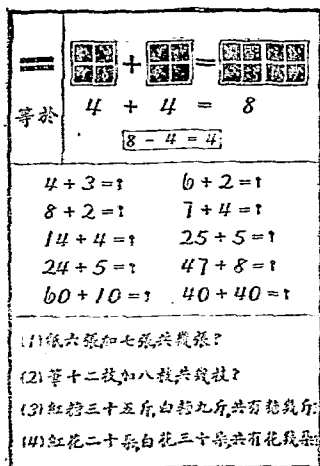 =
等於
+ =
4 + 4 = 8
8 - 4 = 4
4 + 3 = ? 6 + 2 = ?
8 + 2 = ? 7 + 4 = ?
14 + 4 = ? 25 + 5 = ?
24 + 5 = ? 47 + 8 = ?
60 + 10 = ? 40 + 40 = ?
(1)紙六張加七張共幾張?
(2)筆十二枝加八枝共幾枝?
(3)紅糖三十五斤白糖九斤共有糖幾斤
(4)紅花二十朵白花三十朵共有花幾朵